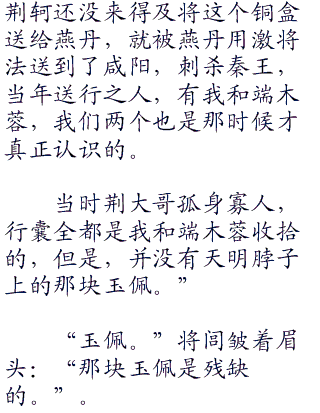 荆轲还没来得及将这个铜盒
送给燕丹，就被燕丹用激将
法送到了咸阳，刺杀秦王，
当年送行之人，有我和端木
蓉，我们两个也是那时候才
真正认识的。
当时荆大哥孤身寡人，
行囊全都是我和端木蓉收拾
的，但是，并没有天明脖子
上的那块玉佩。”
“玉佩。”将闾皱着眉
头：“那块玉佩是残缺
的。”。